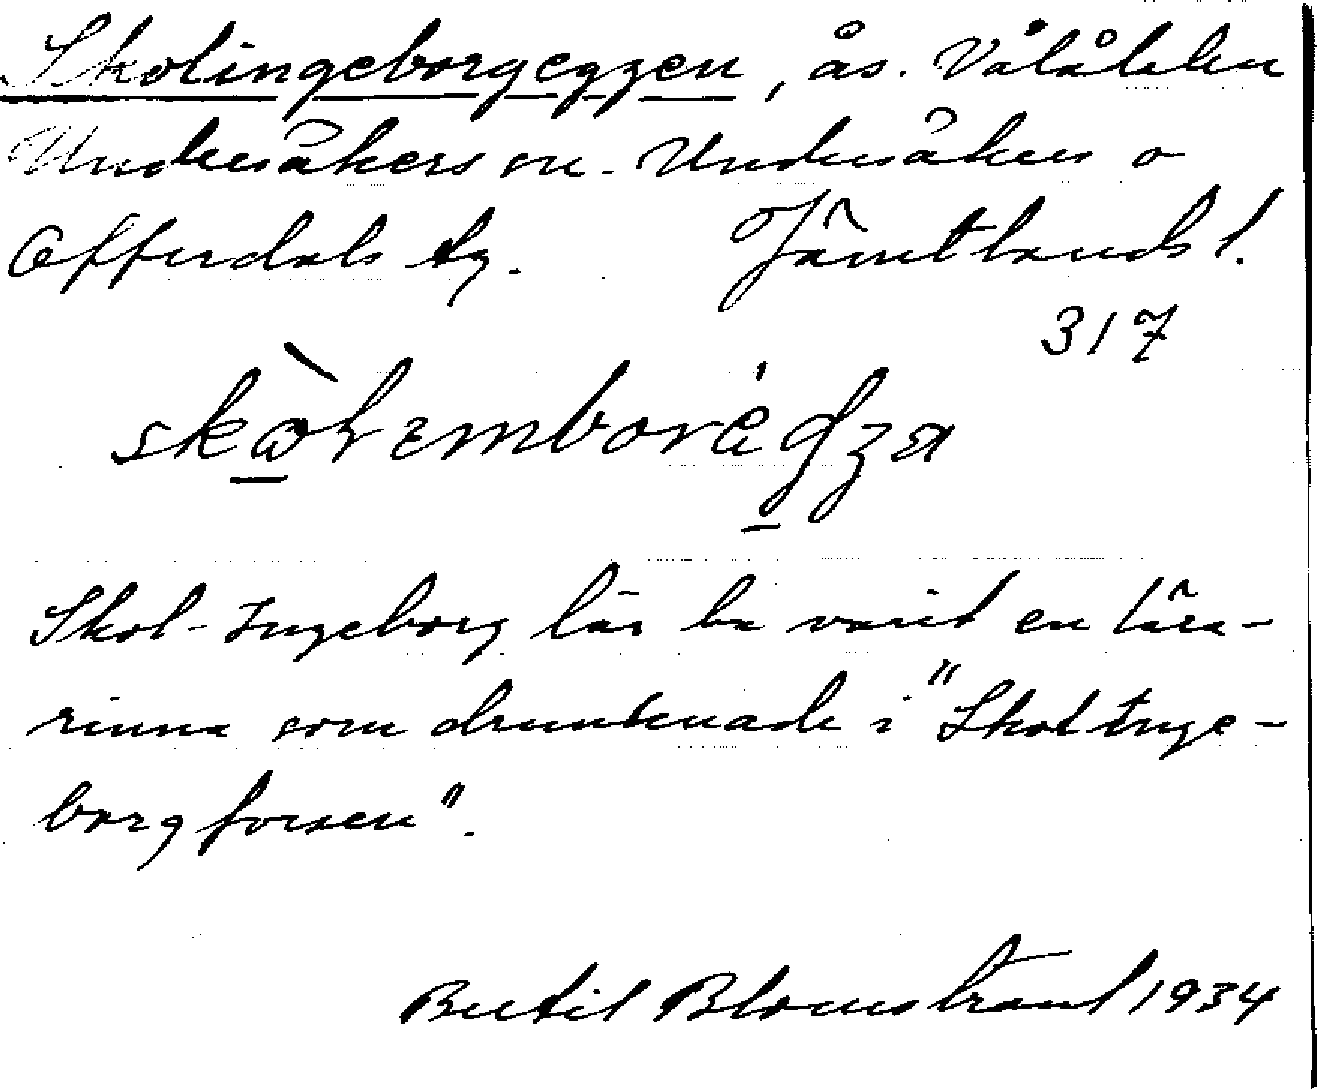 Skolingeborgeggen, ås. Vålådalen
Undersåkers sn. Undersåkers o
Offerdals tg. Jämtlands l.
317
Skol-Ingeborg lär ha varit en lära-
rinna som drunknade i "Skolinge-
borgforsen".
Bertil Blomstrand 1934